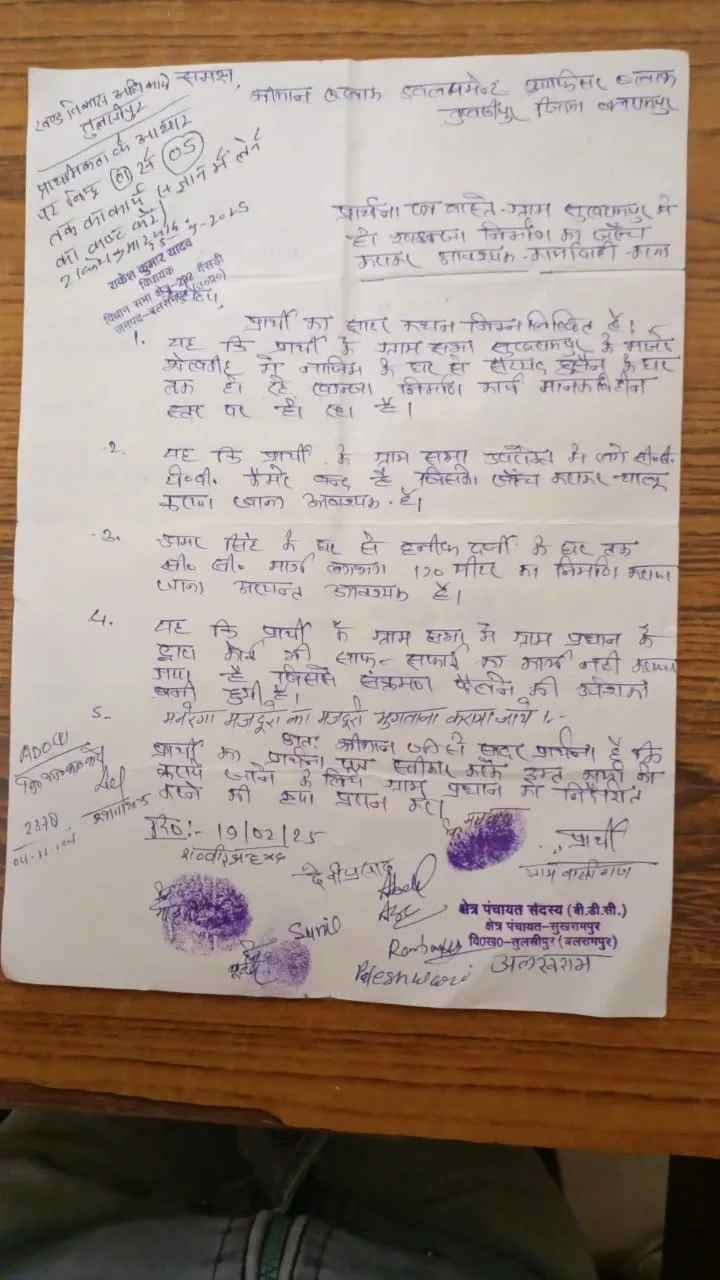 समक्ष,
श्रीमान ब्लाक डवलपमेन्ट आफिसर ब्लाक
तुलसीपुर जिला बलरामपुर
खण्ड विकास अधिकारी
तुलसीपुर
प्राथमिकता के आधार
पर बिन्दु 01 से 05
तक का कार्य
का कष्ट करें।
राकेश कुमार यादव
विधायक
विधान सभा क्षेत्र-292 गैंसड़ी
जनपद-बलरामपुर (उ०प्र०)
प्रार्थना पत्र वास्ते ग्राम सुखरामपुर में
हो खडन्जा निर्माण का जाँच
कराकर आवश्यक कार्यवाही
प्रार्थी का सादर कथन निम्नलिखित है।
1. यह कि प्रार्थी के ग्राम सभा सुखरामपुर के मजरे
में नाजिम के घर से सय्यद हुसैन के घर
तक हो रहे खडन्जा निर्माण कार्य मानकविहीन
स्तर पर हो रहा है।
2. यह कि प्रार्थी के ग्राम सभा उपरोक्त में लगे सी०सी०
टी०वी० कैमरे बन्द है जिसकी जाँच कराकर चालू
कराया जाना आवश्यक है।
3. अमर सिंह के घर से हनीफ दर्जी के घर तक
सी० सी० मार्ग लगभग 120 मीटर का निर्माण कराया
जाना अत्यन्त आवश्यक है।
4. यह कि प्रार्थी के ग्राम सभा में ग्राम प्रधान के
द्वारा कोई भी साफ-सफाई का कार्य नही कराया
गया है जिससे संक्रमण फैलने की
बनी हुयी है।
5- मनरेगा मजदूरों का मजदूरी भुगतान कराया जाये।
अतः श्रीमान जी से सादर प्रार्थना है कि
प्रार्थी का प्रार्थना पत्र स्वीकार करके उक्त कार्यों को
कराये जाने के लिये ग्राम प्रधान को निर्देशित
करने की कृपा प्रदान करें।
ADO(P)
2370
19/02/25
प्रार्थी
देवीप्रसाद
Abdul
Sunil
क्षेत्र पंचायत सदस्य (बी.डी.सी.)
क्षेत्र पंचायत-सुखरामपुर
वि०ख०-तुलसीपुर (बलरामपुर)
अलखराम